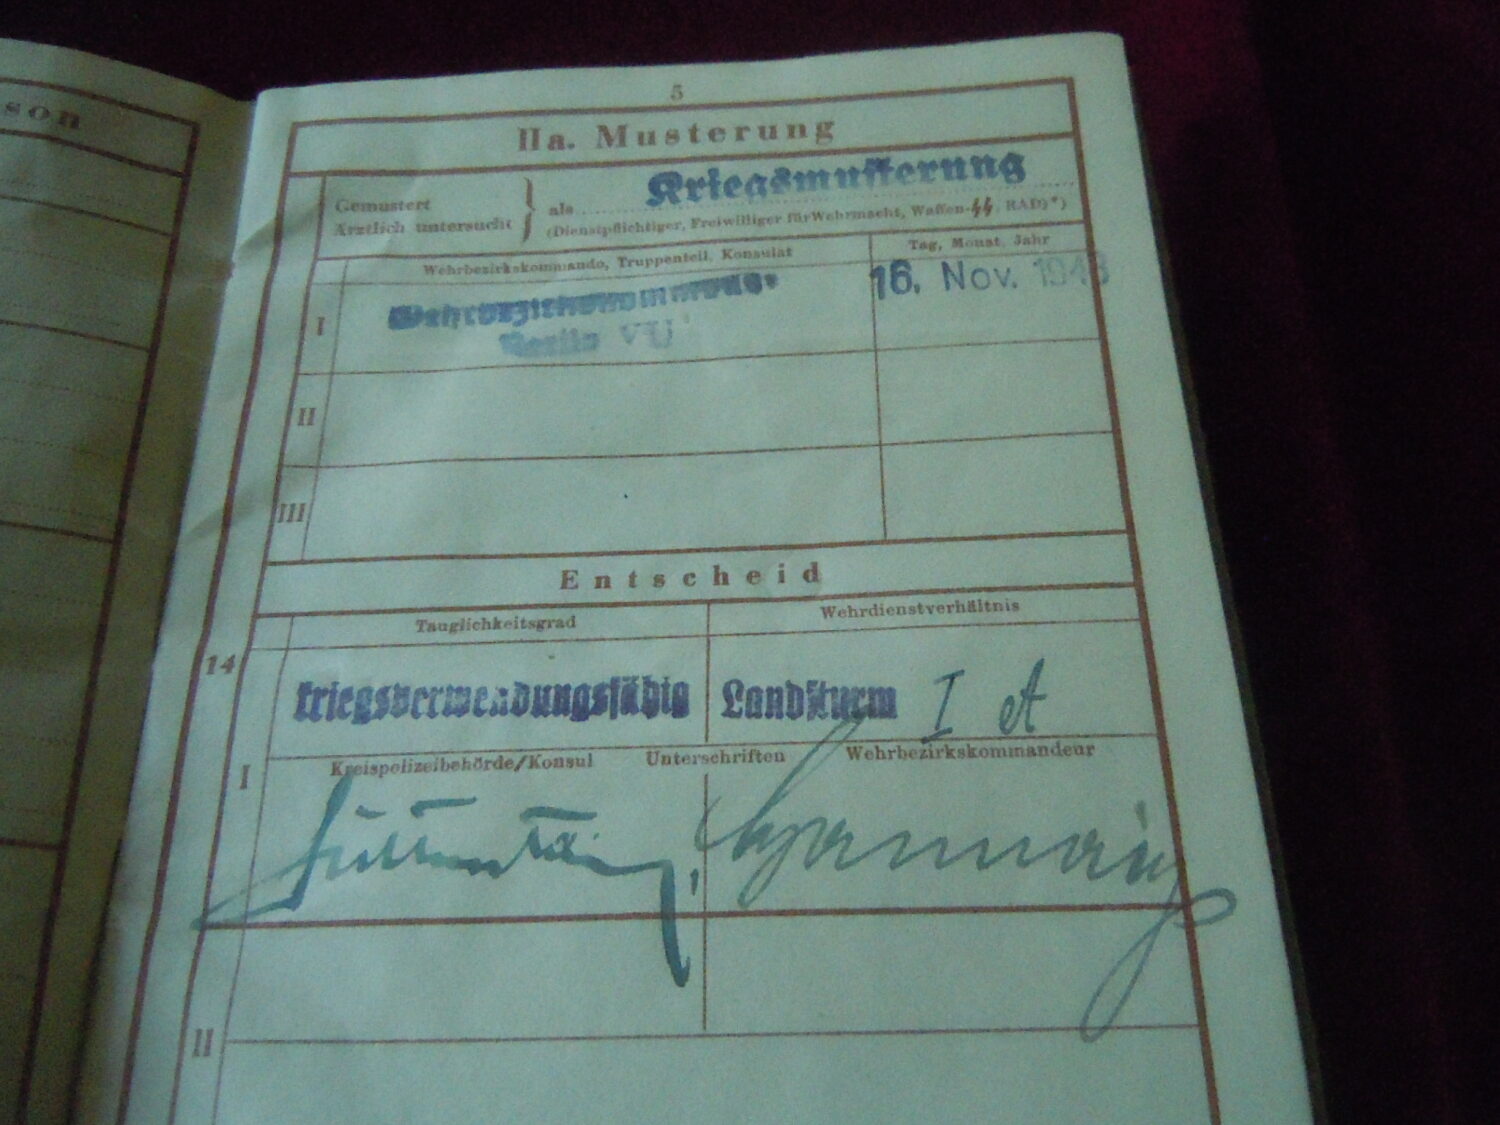 son
5
IIa. Musterung
Gemustert
Ärztlich untersucht
als
Kriegsmusterung
(Dienstpflichtiger, Freiwilliger für Wehrmacht, Waffen-SS, RAD)*)
Wehrbezirkskommando, Truppenteil, Konsulat
Tag, Monat, Jahr
I
Wehrbezirkskommando
Berlin VII
16. Nov. 1943
II
III
Entscheid
Tauglichkeitsgrad
Wehrdienstverhältnis
14
kriegsverwendungsfähig
Landsturm I A
I
Kreispolizeibehörde/Konsul
Unterschriften
Wehrbezirkskommandeur
II